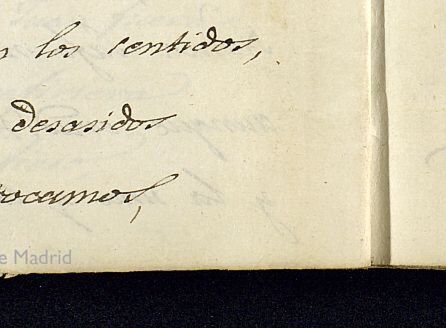 los sentidos,
desasidos
ocamos,
e Madrid